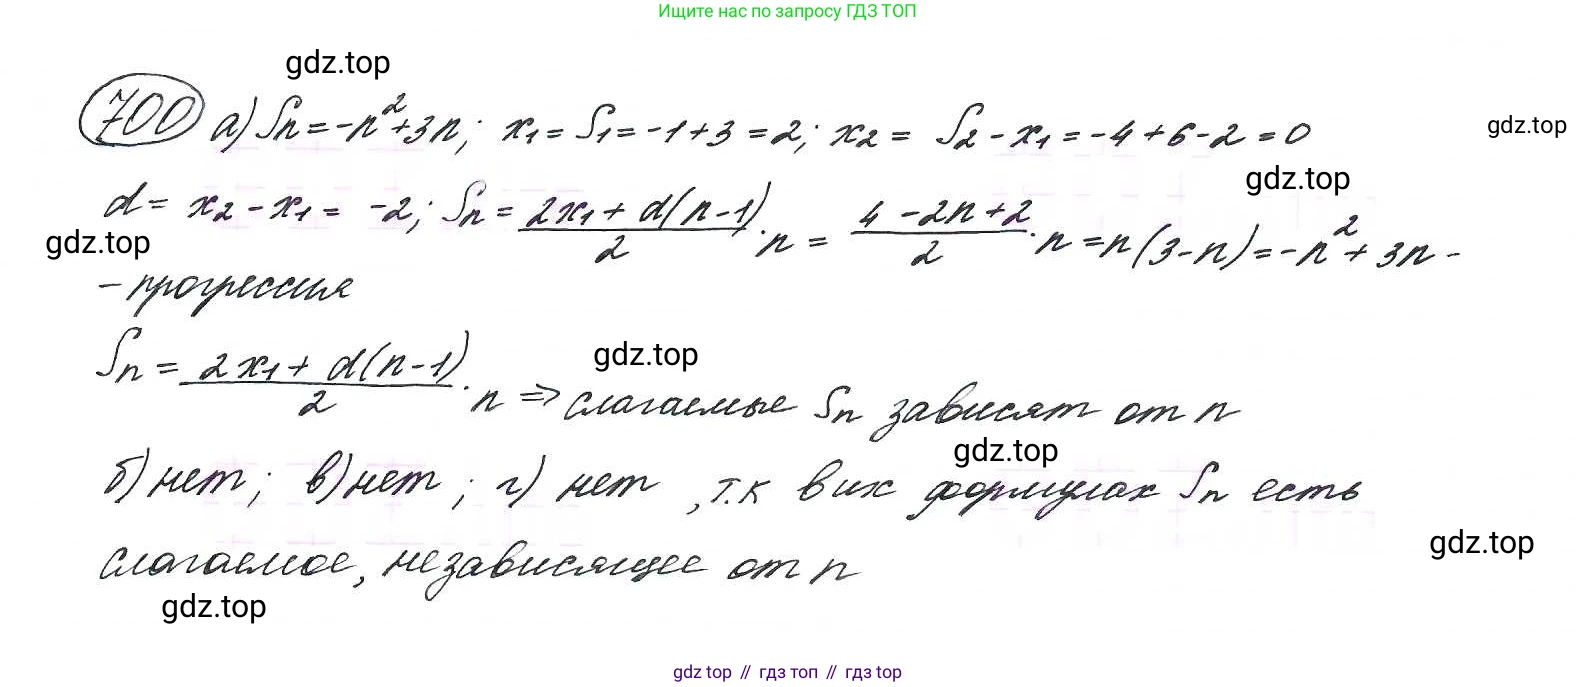 Ищите нас по запросу ГДЗ ТОП
gdz.top
700 а) Sn = -n² + 3n; x₁ = S₁ = -1 + 3 = 2; x₂ = S₂ - x₁ = -4 + 6 - 2 = 0
gdz.top
gdz.top
d = x₂ - x₁ = -2; Sn = (2x₁ + d(n-1))/2 · n = (4 - 2n + 2)/2 · n = n(3-n) = -n² + 3n -
gdz.top
- прогрессия
gdz.top
Sn = (2x₁ + d(n-1))/2 · n ⇒ слагаемые Sn зависят от n
gdz.top
б) нет; в) нет; г) нет, т.к в их формулах Sn есть
gdz.top
слагаемое, независящее от n
gdz.top
gdz top // гдз топ // гдз top